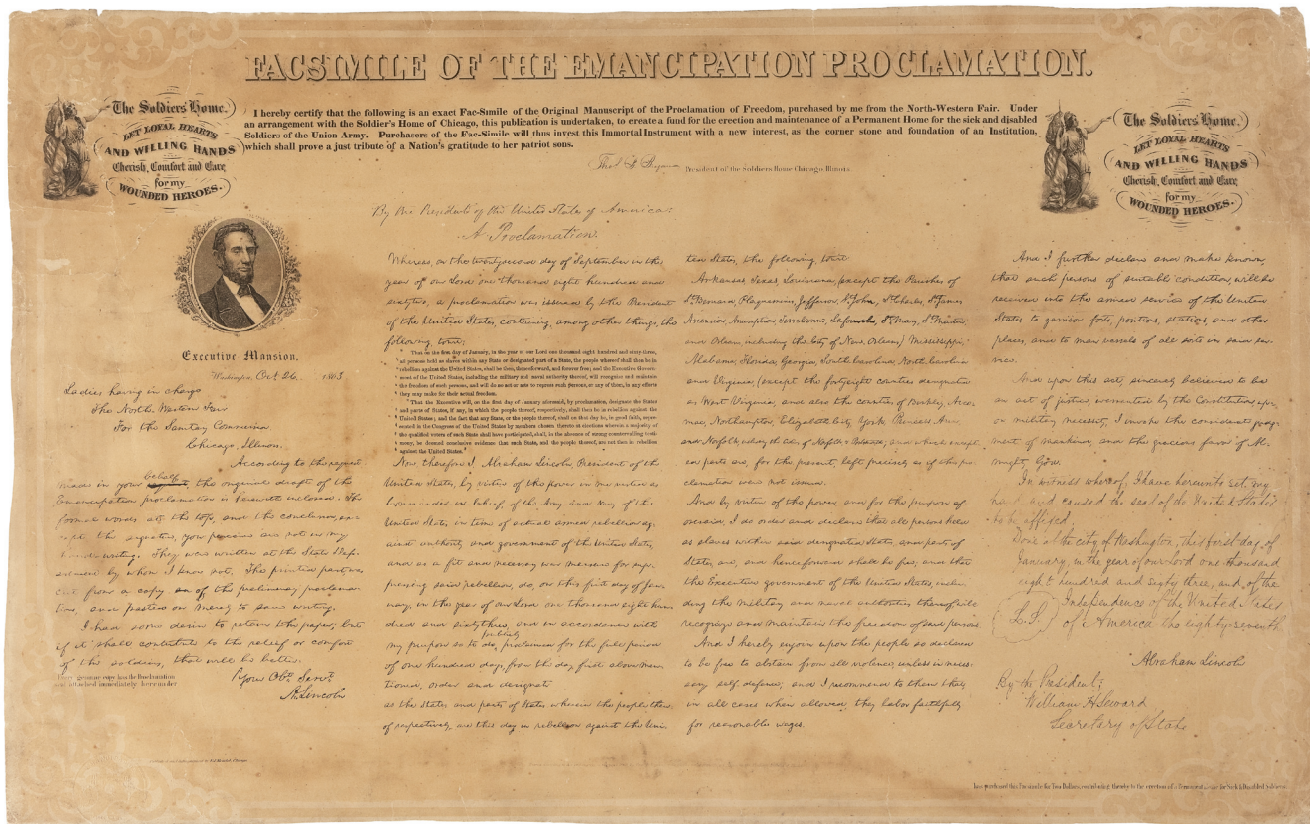 FACSIMILE OF THE EMANCIPATION PROCLAMATION.
The Soldiers' Home.
LET LOYAL HEARTS
AND WILLING HANDS
Cherish, Comfort and Care
for my
WOUNDED HEROES.
I hereby certify that the following is an exact Fac-Simile of the Original Manuscript of the Proclamation of Freedom, purchased by me from the North-Western Fair. Under
an arrangement with the Soldier's Home of Chicago, this publication is undertaken, to create a fund for the erection and maintenance of a Permanent Home for the sick and disabled
Soldiers of the Union Army. Purchasers of the Fac-Simile will thus invest this Immortal Instrument with a new interest, as the corner stone and foundation of an Institution,
which shall prove a just tribute of a Nation's gratitude to her patriot sons.
President of the Soldiers Home Chicago, Illinois.
The Soldiers' Home.
LET LOYAL HEARTS
AND WILLING HANDS
Cherish, Comfort and Care
for my
WOUNDED HEROES.
Executive Mansion,
Washington, Oct. 26, 1863
Ladies having in charge
The North-Western Fair
For the Sanitary Commission
Chicago Illinois.
According to the request
made in your behalf, the original draft of the
Emancipation proclamation is herewith inclosed. The
formal words at the top, and the conclusion, ex-
cept the signature, you perceive are not in my
hand-writing. They were written at the State Depart-
ment by whom I know not. The printed part was
cut from a copy of the preliminary proclama-
tion, and pasted on merely to save writing.
I had some desire to retain the paper; but
if it shall contribute to the relief or comfort
of the soldiers, that will be better.
Your Obt. Servt.
A. Lincoln
Every genuine copy has the Proclamation
attached immediately hereunder
By the President of the United States of America:
A Proclamation.
Whereas, on the twenty-second day of September, in the
year of our Lord one thousand eight hundred and
sixty two, a proclamation was issued by the President
of the United States, containing, among other things, the
following, towit:
"That on the first day of January, in the year of our Lord one thousand eight hundred and sixty-three,
all persons held as slaves within any State or designated part of a State, the people whereof shall then be in
rebellion against the United States, shall be then, thenceforward, and forever free; and the Executive Govern-
ment of the United States, including the military and naval authority thereof, will recognize and maintain
the freedom of such persons, and will do no act or acts to repress such persons, or any of them, in any efforts
they may make for their actual freedom.
"That the Executive will, on the first day of January aforesaid, by proclamation, designate the States
and parts of States, if any, in which the people thereof, respectively, shall then be in rebellion against the
United States; and the fact that any State, or the people thereof, shall on that day be, in good faith, repre-
sented in the Congress of the United States by members chosen thereto at elections wherein a majority of
the qualified voters of such State shall have participated, shall, in the absence of strong countervailing testi-
mony, be deemed conclusive evidence that such State, and the people thereof, are not then in rebellion
against the United States."
Now, therefore I, Abraham Lincoln, President of the
United States, by virtue of the power in me vested as
Commander-in-Chief, of the Army and Navy of the
United States, in time of actual armed rebellion ag-
ainst authority and government of the United States,
and as a fit and necessary war measure for sup-
pressing said rebellion, do, on this first day of Jan-
uary, in the year of our Lord one thousand eight hun-
dred and sixty three, and in accordance with
my purpose so to do, publicly proclaimed for the full period
of one hundred days, from the day first above men-
tioned, order and designate
as the States and parts of States wherein the people there-
of respectively, are this day in rebellion against the Uni-
ted States, the following, towit:
Arkansas, Texas, Louisiana, (except the Parishes of
St. Bernard, Plaquemines, Jefferson, St. John, St. Charles, St. James,
Ascension, Assumption, Terrebonne, Lafourche, St. Mary, St. Martin,
and Orleans, including the City of New Orleans) Mississippi,
Alabama, Florida, Georgia, South Carolina, North Carolina,
and Virginia, (except the fortyeight counties designated
as West Virginia, and also the counties of Berkley, Acco-
mac, Northampton, Elizabeth City, York, Princess Ann,
and Norfolk, including the cities of Norfolk & Portsmouth); and which except-
ed parts are, for the present, left precisely as if this pro-
clamation were not issued.
And by virtue of the power, and for the purpose af-
oresaid, I do order and declare that all persons held
as slaves within said designated States, and parts of
States, are, and henceforward shall be free; and that
the Executive government of the United States, inclu-
ding the military and naval authorities thereof, will
recognize and maintain the freedom of said persons.
And I hereby enjoin upon the people so declared
to be free to abstain from all violence, unless in neces-
sary self-defence; and I recommend to them that,
in all cases when allowed, they labor faithfully
for reasonable wages.
And I further declare and make known,
that such persons of suitable condition, will be
received into the armed service of the United
States to garrison forts, positions, stations, and other
places, and to man vessels of all sorts in said ser-
vice.
And upon this act, sincerely believed to be
an act of justice, warranted by the Constitution, upon
military necessity, I invoke the considerate judg-
ment of mankind, and the gracious favor of Al-
mighty God.
In witness whereof, I have hereunto set my
hand and caused the seal of the United States
to be affixed.
Done at the city of Washington, this first day of
January, in the year of our Lord one thousand
eight hundred and sixty three, and of the
L.S.
Independence of the United States
of America the eighty-seventh.
Abraham Lincoln
By the President;
William H. Seward
Secretary of State